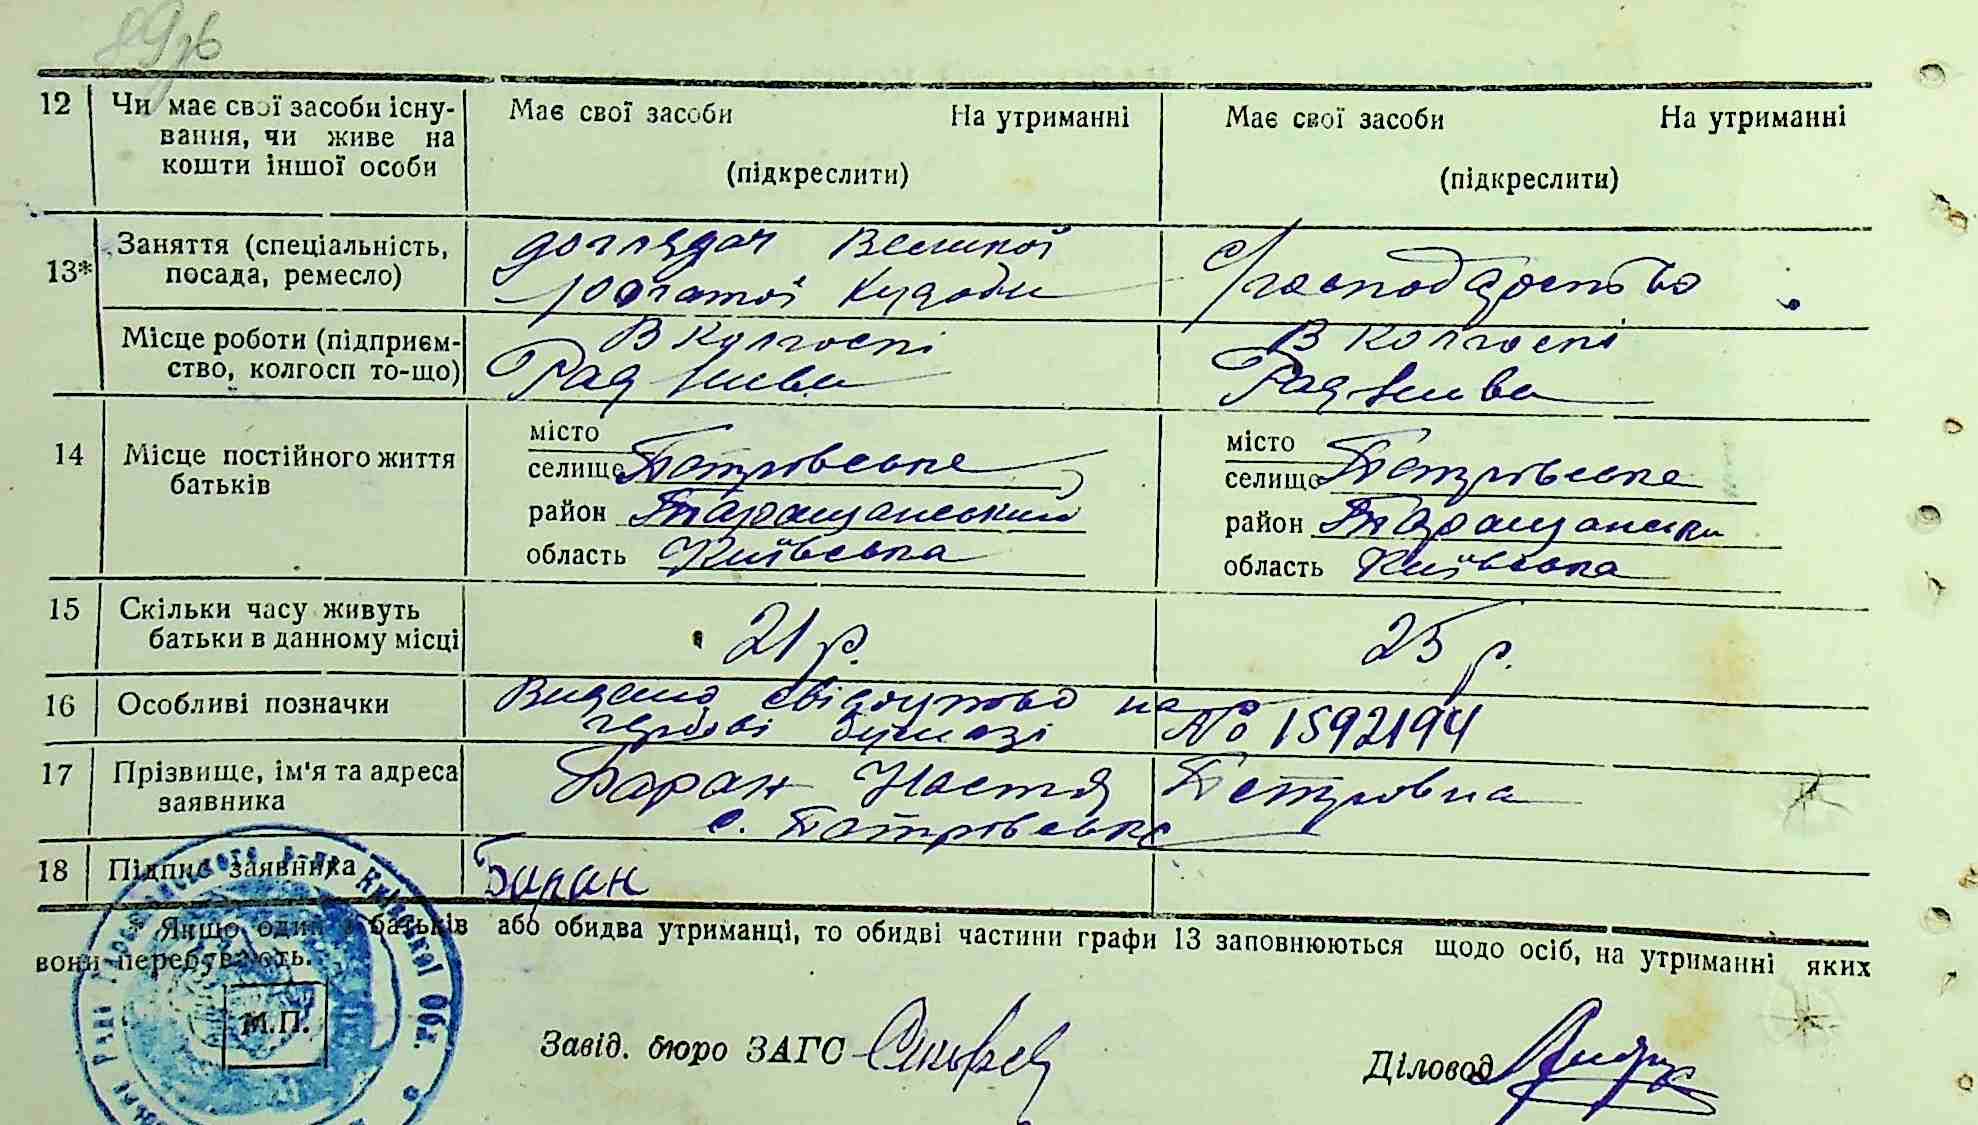 12 Чи має свої засоби існу- Має свої засоби На утриманні Має свої засоби На утриманні
вання, чи живе на
кошти іншої особи (підкреслити) (підкреслити)
13* Заняття (спеціальність, доглядач Великої с/господарство
посада, ремесло) рогатої худоби
Місце роботи (підприєм- В Колгоспі В Колгоспі
ство, колгосп то-що) Рад нива Рад нива
місто місто
14 Місце постійного життя селище Петрівське селище Петрівське
батьків район Таращанський район Таращански
область Київська область Київська
15 Скільки часу живуть 21 р. 25 р.
батьки в данному місці
16 Особливі позначки Видано свідоцтво на
гербові бумазі № 1592194
17 Прізвище, ім'я та адреса Баран Настя Петровна
заявника с. Петрівське
18 Підпис заявника Баран
* Якщо один з батьків або обидва утриманці, то обидві частини графи 13 заповнюються щодо осіб, на утриманні яких
вони перебувають.
М.П.
Завід. бюро ЗАГС Діловод